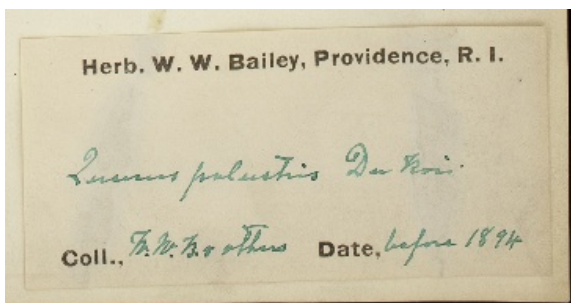 Herb. W. W. Bailey, Providence, R. I.
Quercus palustris Du Roi.
Coll., W.W.B. & others Date, before 1894